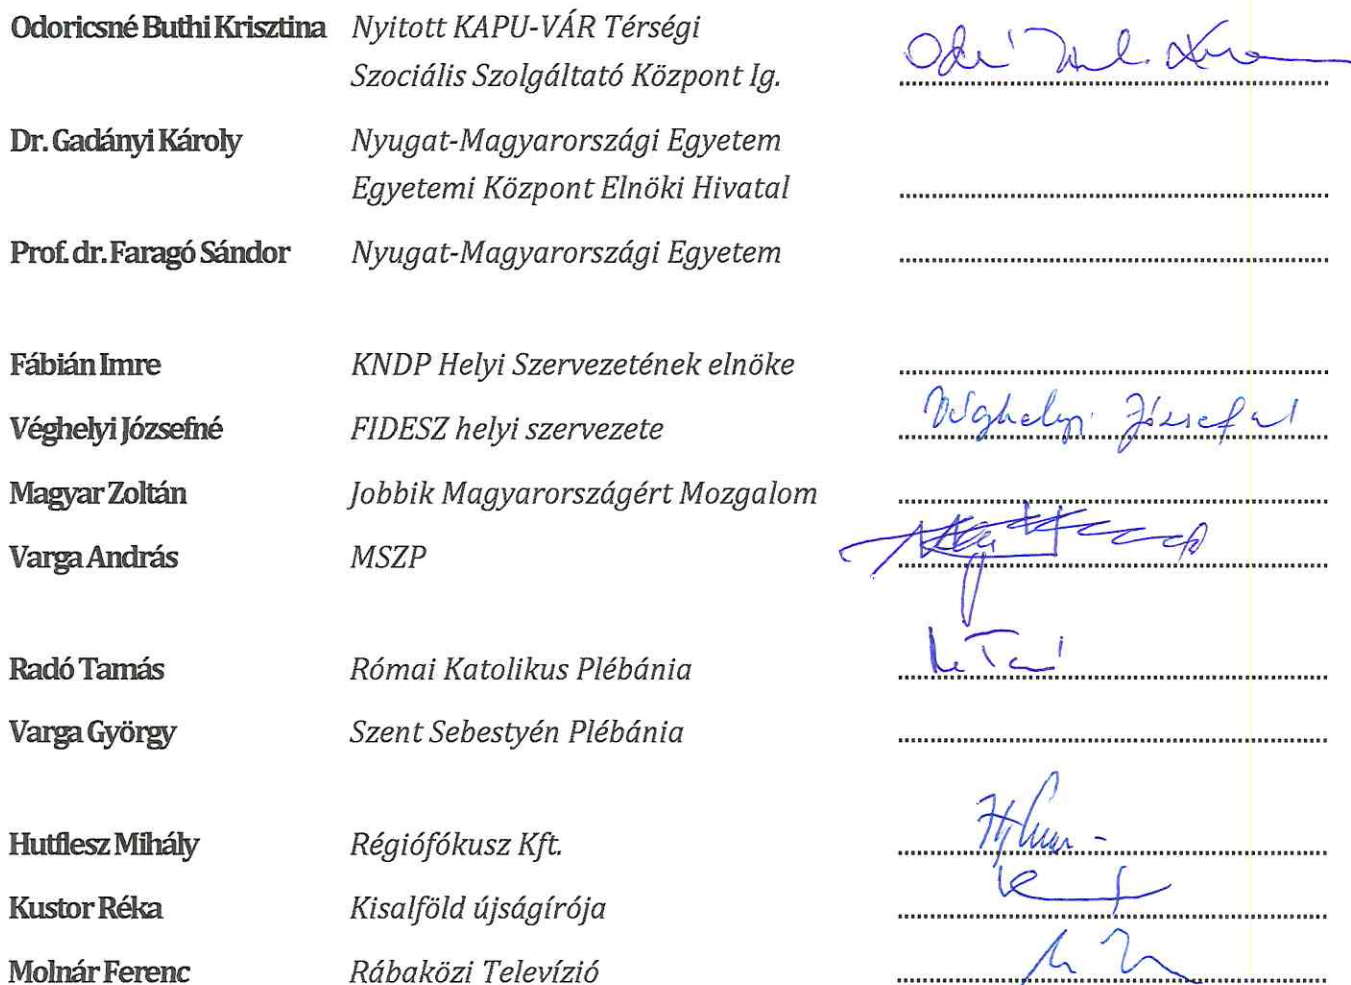 Odoricsné Buthi Krisztina Nyitott KAPU-VÁR Térségi
Szociális Szolgáltató Központ Ig.
Dr. Gadányi Károly Nyugat-Magyarországi Egyetem
Egyetemi Központ Elnöki Hivatal
Prof. dr. Faragó Sándor Nyugat-Magyarországi Egyetem
Fábián Imre KNDP Helyi Szervezetének elnöke
Véghelyi Józsefné FIDESZ helyi szervezete Véghelyi Józsefné
Magyar Zoltán Jobbik Magyarországért Mozgalom
Varga András MSZP
Radó Tamás Római Katolikus Plébánia
Varga György Szent Sebestyén Plébánia
Hutflesz Mihály Régiófókusz Kft.
Kustor Réka Kisalföld újságírója
Molnár Ferenc Rábaközi Televízió